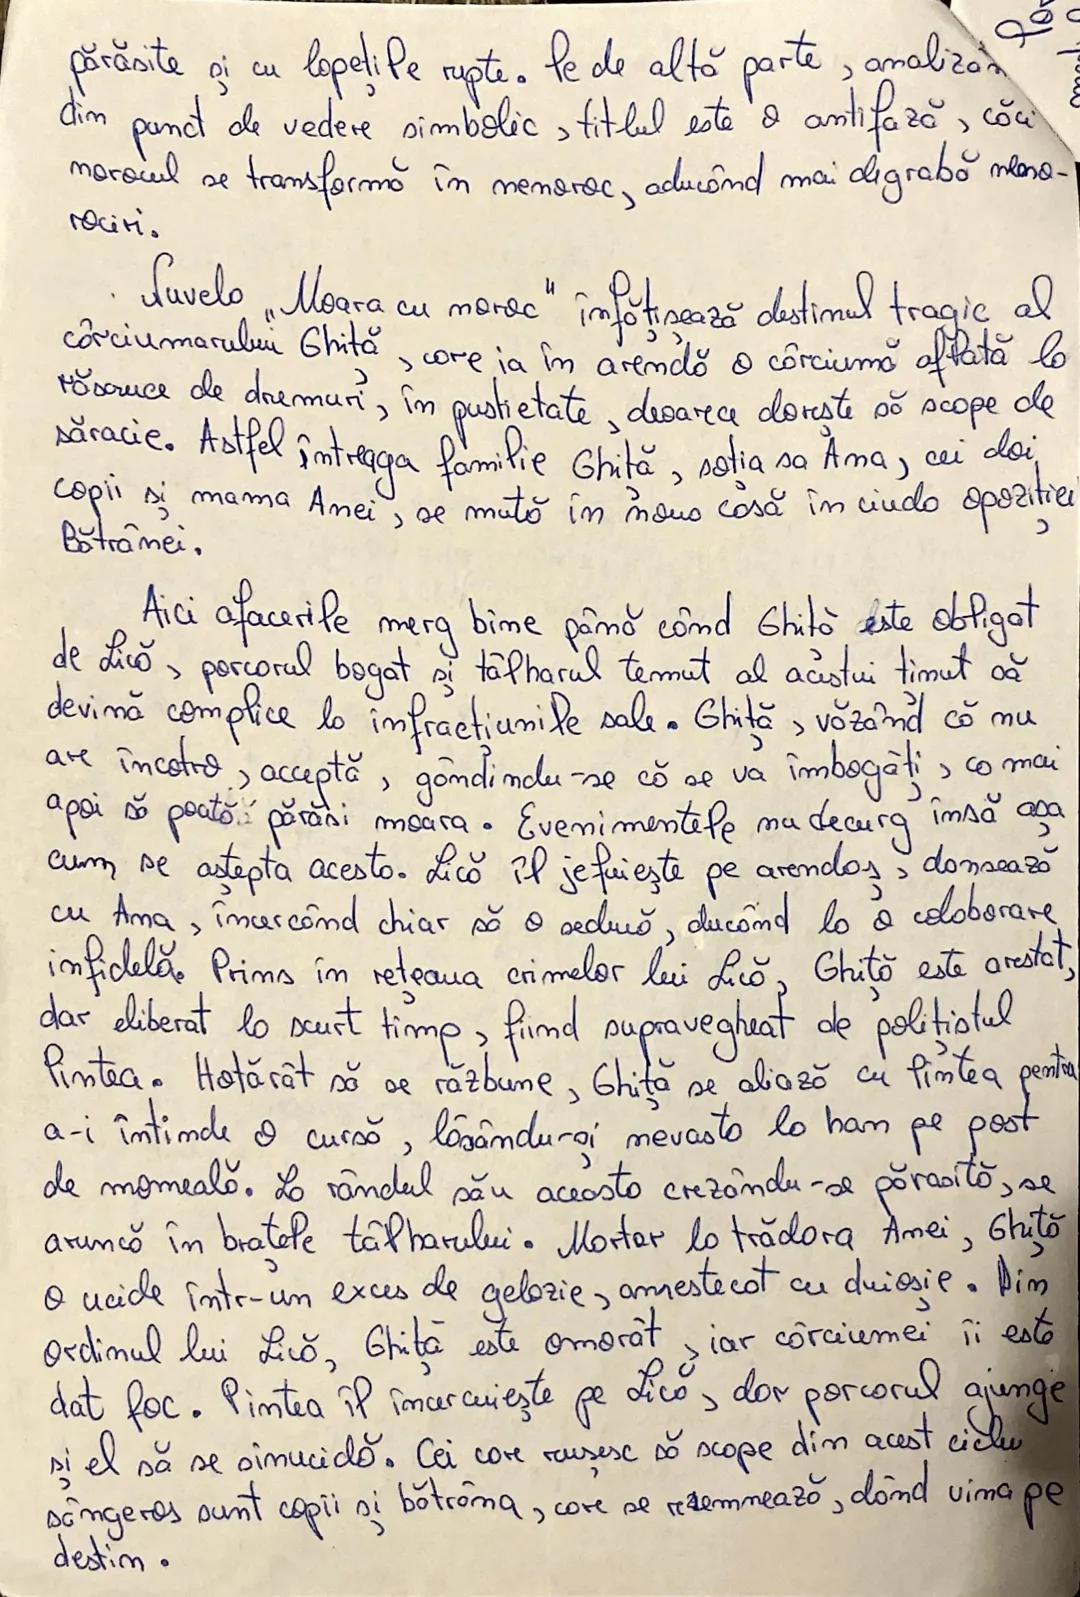 părăsite și cu lopețile rupte. Pe de altă parte, analizân
din punct de vedere simbolic, titlul este o antifază, căci
norocul se transformă în nenoroc, aducând mai degrabă neno-
rociri.
Nuvela „Moara cu noroc" înfățisează destinul tragic al
cârciumarului Ghiță, care ia în arendă o cârciumă aflată la
răscruce de drumuri, în pustietate, deoarece dorește să scape de
sărăcie. Astfel întreaga familie Ghiță, soția sa Ana, cei doi
copii și mama Anei, se mută în noua casă în ciuda opoziției
Bătrânei.
Aici afacerile merg bine până când Ghiță este obligat
de Lică, porcarul bogat și tâlharul temut al acestui ținut să
devină complice la infracțiunile sale. Ghiță, văzând că nu
are încotro, acceptă, gândindu-se că se va îmbogăți, ca mai
apoi să poată părăsi moara. Evenimentele nu decurg însă așa
cum se aștepta acesta. Lică îl jefuiește pe arendaș, dansează
cu Ana, încercând chiar să o seducă, ducând la o colaborare
infidelă. Prins în rețeaua crimelor lui Lică, Ghiță este arestat,
dar eliberat la scurt timp, fiind supravegheat de polițistul
Pintea. Hotărât să se răzbune, Ghiță se aliază cu Pintea pentru
a-i întinde o cursă, lăsându-și nevasta la han pe post
de momeală. La rândul său aceasta crezându-se părăsită, se
aruncă în brațele tâlharului. Martor la trădarea Anei, Ghiță
o ucide într-un exces de gelozie, amestecat cu duioșie. Din
ordinul lui Lică, Ghiță este omorât, iar cârciumei îi este
dat foc. Pintea îl încercuiește pe Lică, dar porcarul ajunge
și el să se sinucidă. Cei care reușesc să scape din acest ciclu
sângeros sunt copii și bătrâna, care se resemnează, dând vina pe
destin.